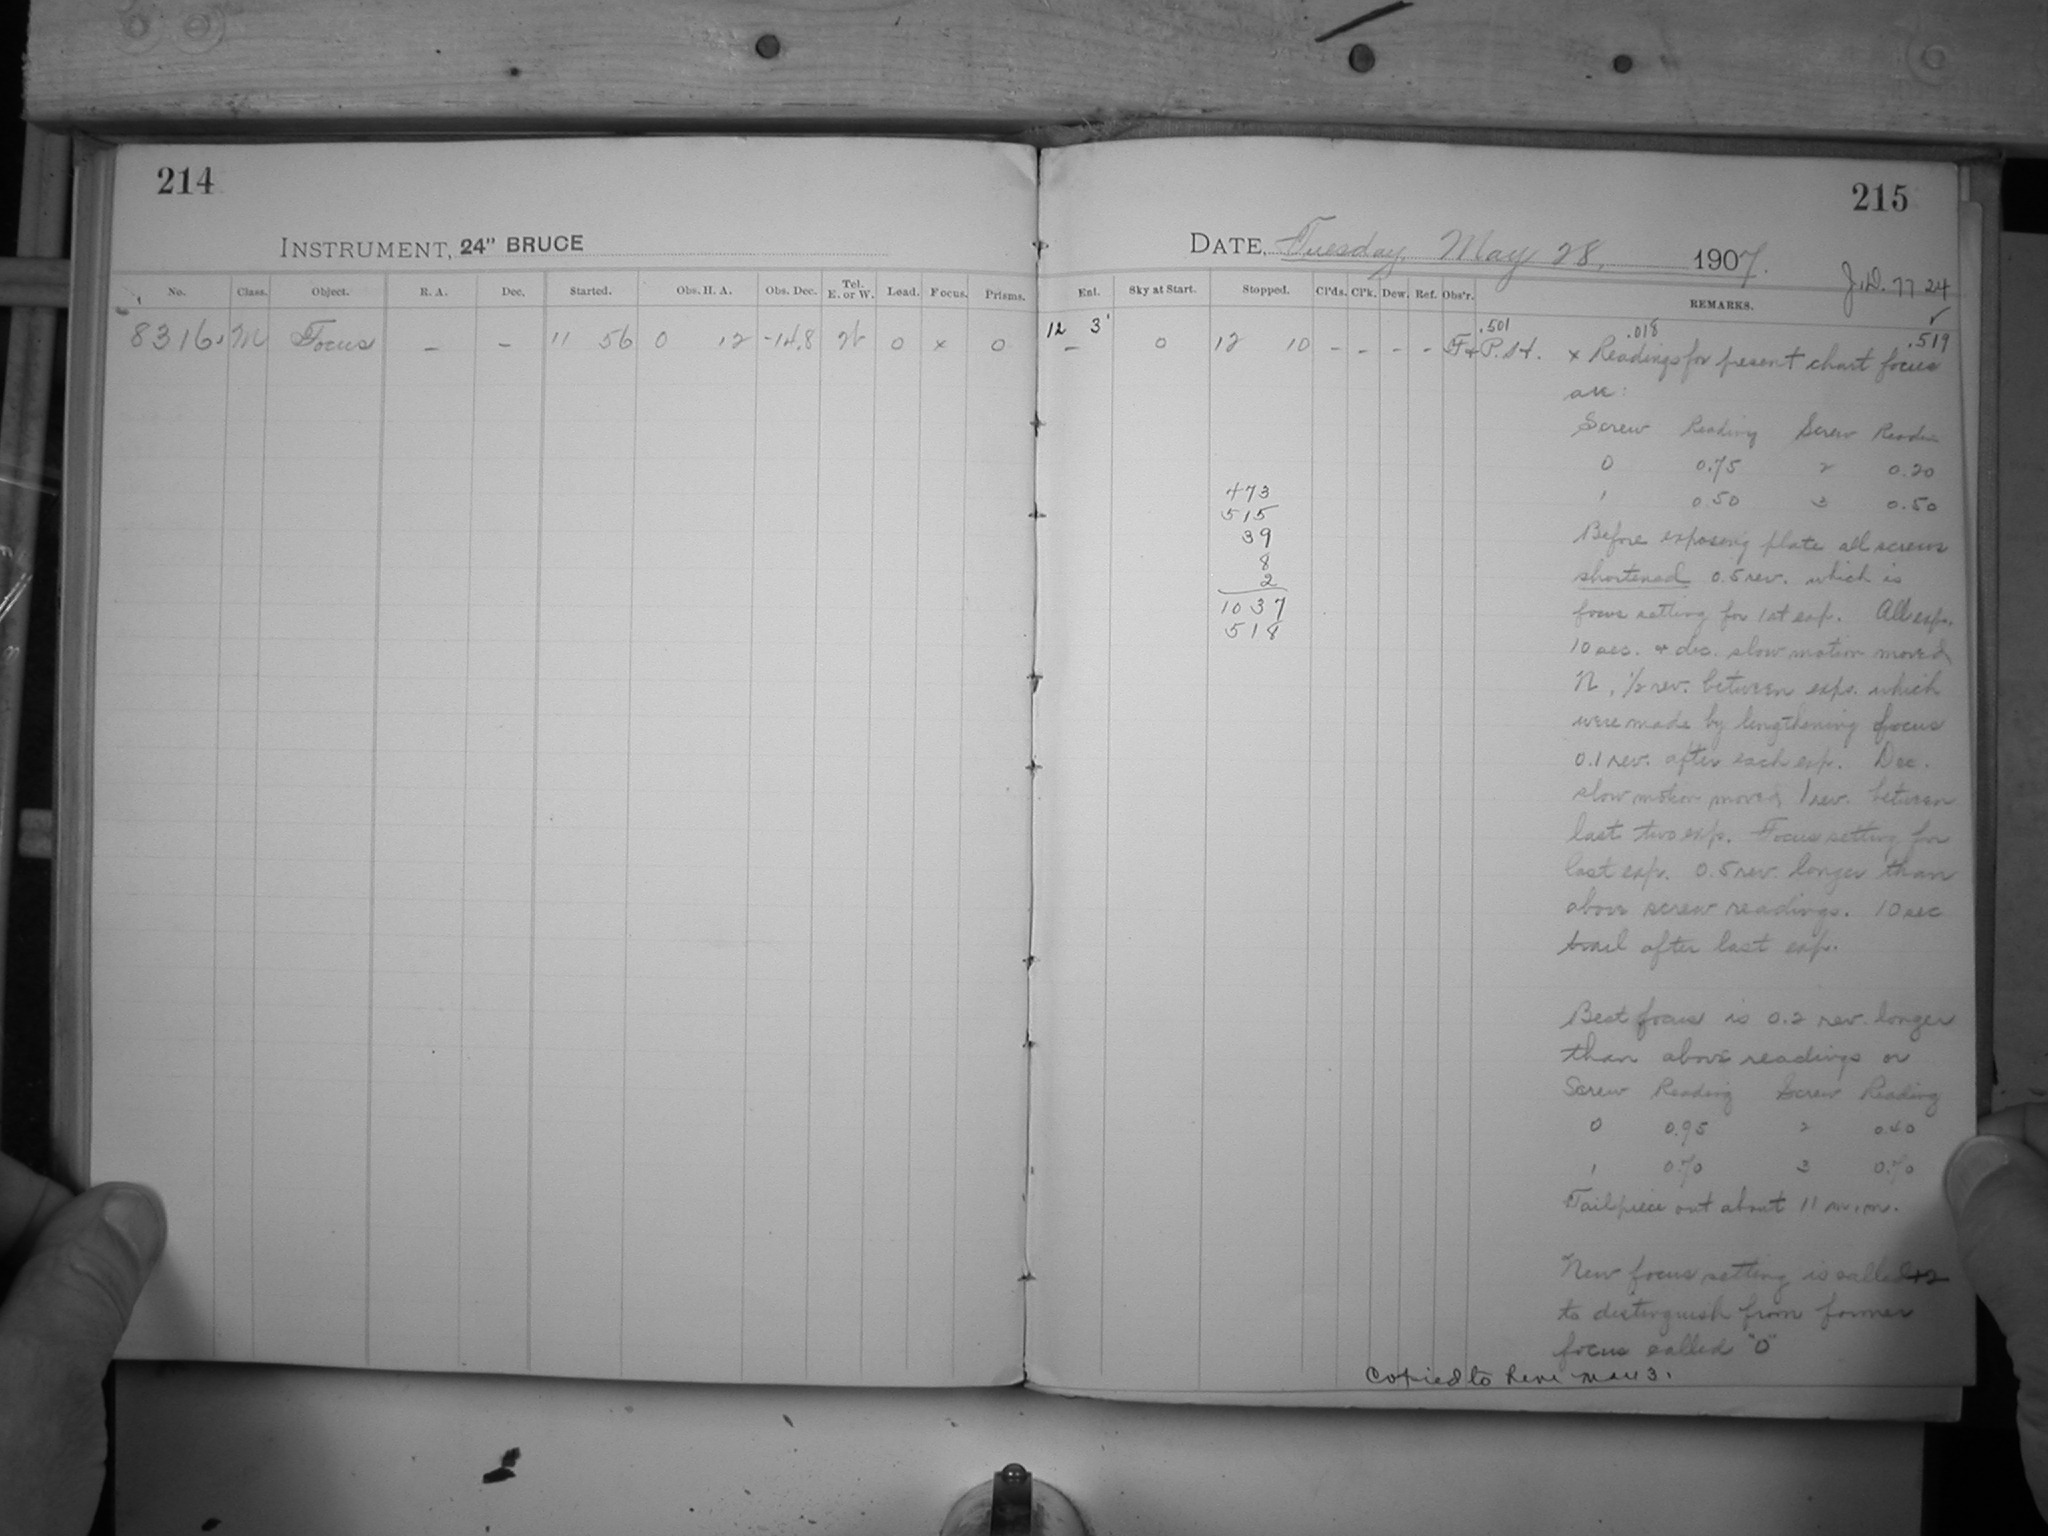 214
INSTRUMENT, 24" BRUCE
No. Class. Object. R. A. Dec. Started. Obs. H. A. Obs. Dec. Tel. E. or W. Lead. Focus. Prisms.
8316 M Focus — — 11 56 0 12 -14.8 W 0 x 0
215
DATE, Tuesday, May 28, 1907.
J.D. 7724
Ent. Sky at Start. Stopped. Cl'ds. Cl'k. Dew. Ref. Obs'r. REMARKS.
12 3' .501 .018 .519
— 0 12 10 - - - -
x Readings for present chart focus
are:
Screw Reading Screw
0 0.75 2 0.20
1 0.50 3 0.50
Before exposing plate all screws
shortened 0.5 rev. which is
focus setting for 1st exp. All exps.
10 sec. & dec. slow motion moved
N, 1/2 rev. between exps. which
were made by lengthening focus
0.1 rev. after each exp. Dec.
slow motion moved 1 rev. between
last two exp. Focus setting for
last exp. 0.5 rev. longer than
above screw readings. 10 sec
trail after last exp.
Best focus is 0.2 rev. longer
than above readings or
Screw Reading Screw Reading
0 0.95 2 0.40
1 0.70 3 0.70
Tailpiece out about 11 m.m.
New focus setting is called +2
to distinguish from former
focus called "0"
473
515
39
8
2
1037
518
Copied to here